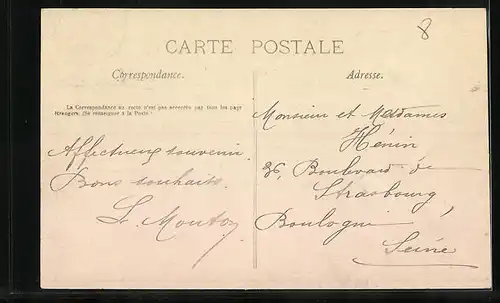 8
CARTE POSTALE
Correspondance.
Adresse.
La Correspondance au recto n'est pas acceptée par tous les pays
étrangers. (Se renseigner à la Poste.)
Monsieur et Meddames
Hénin
36, Boulevard de
Strasbourg
Boulogne
Seine
Affectueux souvenir
Bons souhaits.
L. Mouton